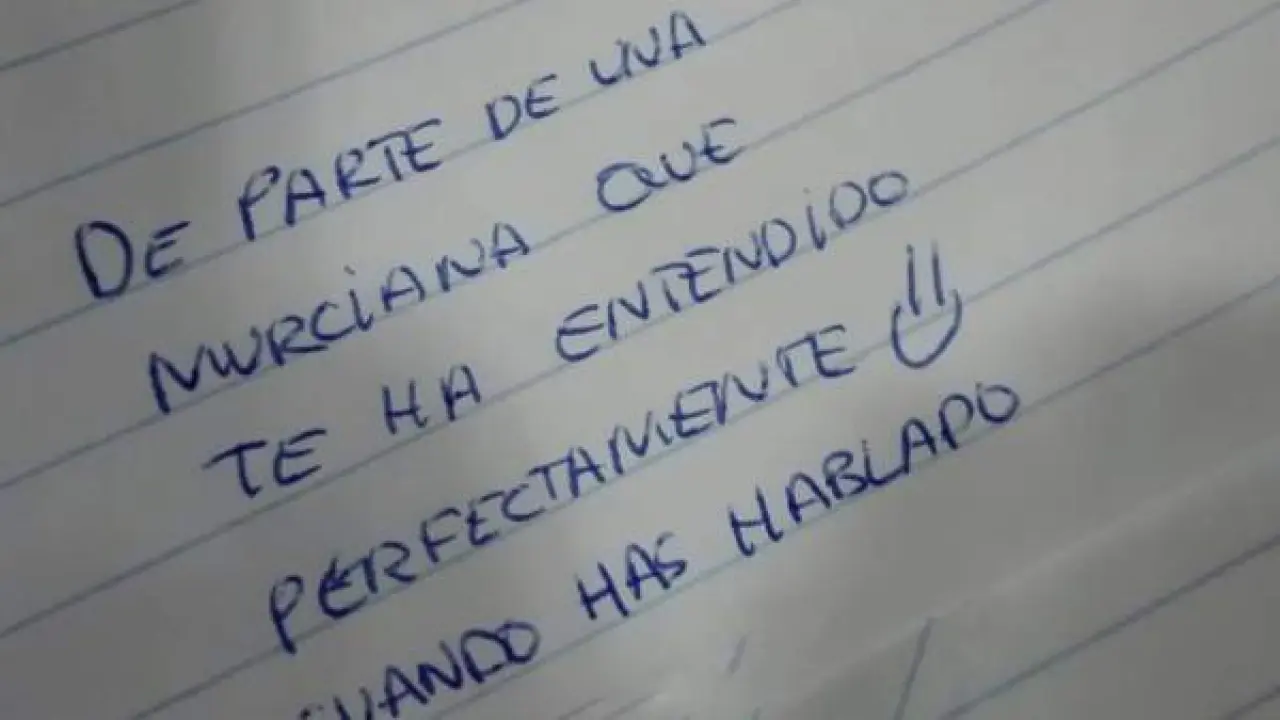 DE PARTE DE UNA
MURCIANA QUE
TE HA ENTENDIDO
PERFECTAMENTE
CUANDO HAS HABLADO